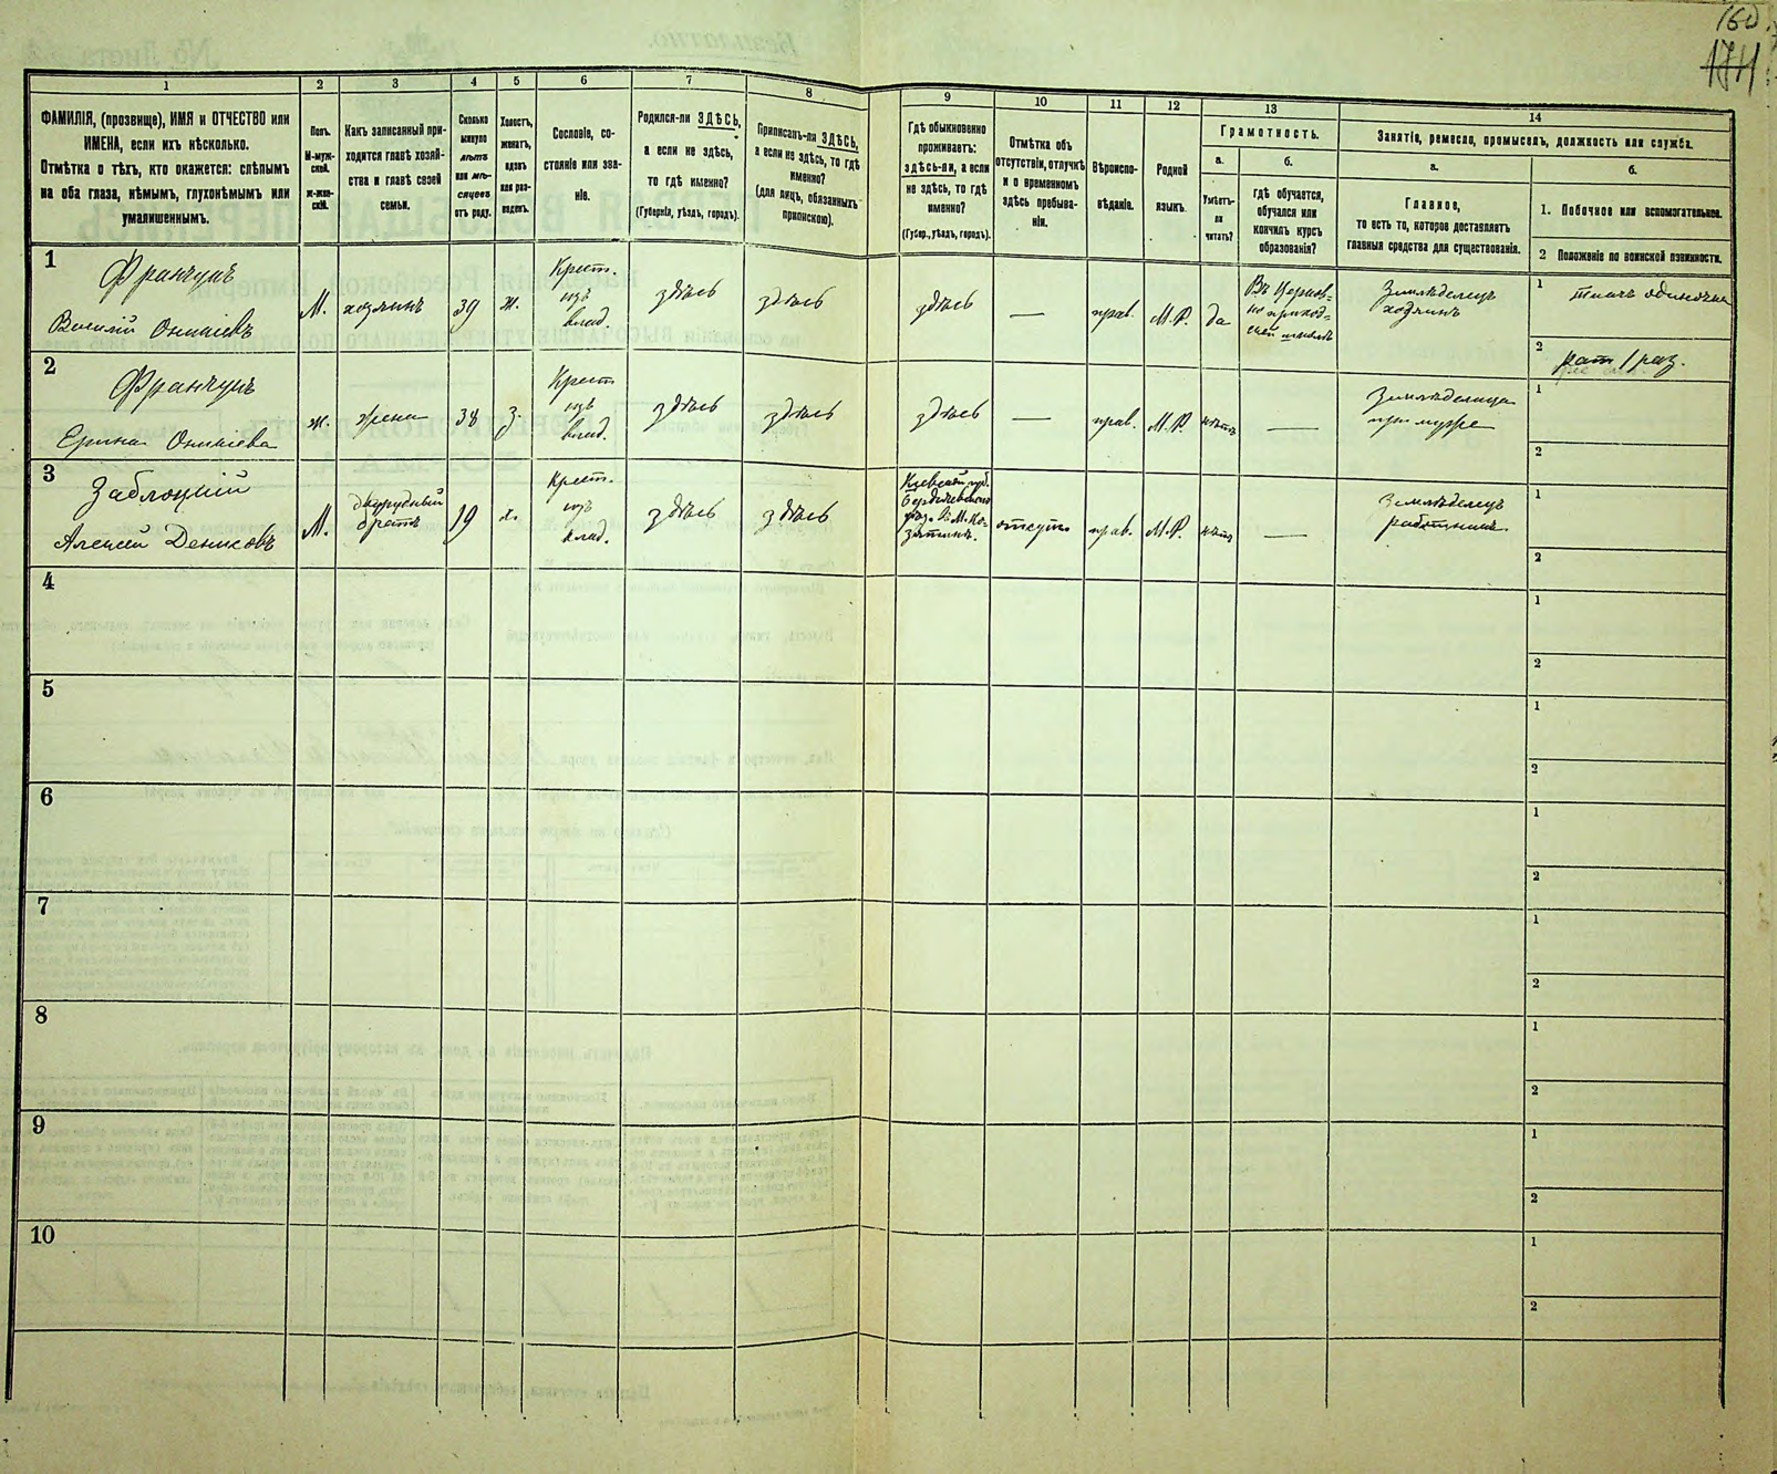 160.
174
1
2
3
4
5
6
7
8
9
10
11
12
13
14
ФАМИЛІЯ, (прозвище), ИМЯ и ОТЧЕСТВО или
ИМЕНА, если ихъ нѣсколько.
Отмѣтка о тѣхъ, кто окажется: слѣпымъ
на оба глаза, нѣмымъ, глухонѣмымъ или
умалишеннымъ.
Полъ.
М-муж-
ской.
ж-жен-
скій.
Какъ записанный при-
ходится главѣ хозяй-
ства и главѣ своей
семьи.
Сколько
минуло
лѣтъ
или мѣ-
сяцевъ
отъ роду.
Холостъ,
женатъ,
вдовъ
или раз-
веденъ.
Сословіе, со-
стояніе или зва-
ніе.
Родился-ли ЗДѢСЬ,
а если не здѣсь,
то гдѣ именно?
(Губернія, уѣздъ, городъ).
Приписанъ-ли ЗДѢСЬ,
а если не здѣсь, то гдѣ
именно?
(для лицъ, обязанныхъ
припискою).
Гдѣ обыкновенно
проживаетъ:
здѣсь-ли, а если
не здѣсь, то гдѣ
именно?
(Губер., уѣздъ, городъ).
Отмѣтка объ
отсутствіи, отлучкѣ
и о временномъ
здѣсь пребыва-
ніи.
Вѣроиспо-
вѣданіе.
Родной
языкъ.
Грамотность.
а.
б.
Умѣетъ-
ли
читать?
гдѣ обучается,
обучался или
кончилъ курсъ
образованія?
Занятіе, ремесло, промыселъ, должность или служба.
а.
б.
Главное,
то есть то, которое доставляетъ
главныя средства для существованія.
1. Побочное или вспомогательное.
2 Положеніе по воинской повинности.
1
Франчукъ
Василій
М.
хозяинъ
39
ж.
Крест.
изъ
влад.
здѣсь
здѣсь
здѣсь
—
прав.
М.Р.
да
Въ Церков-
но приход-
ской школѣ
Земледѣлецъ
хозяинъ
1
2
рат 1 раз.
2
Франчукъ
ж.
жена
38
з.
Крест
изъ
влад.
здѣсь
здѣсь
здѣсь
—
прав.
М.Р.
нѣтъ
—
Земледѣлица
при мужѣ
1
2
3
Заблоцкій
Алексѣй Денисовъ
М.
двоюродный
братъ
19
х.
Крест.
изъ
влад.
здѣсь
здѣсь
Кіевской губ.
Бердичевскаго
отсут.
прав.
М.Р.
нѣтъ
—
Земледѣлецъ
работникъ
1
2
4
1
2
5
1
2
6
1
2
7
1
2
8
1
2
9
1
2
10
1
2